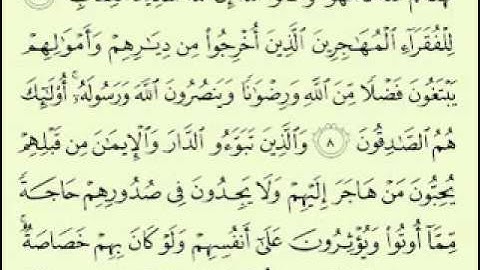 لِلْفُقَرَآءِ ٱلْمُهَـٰجِرِينَ ٱلَّذِينَ أُخْرِجُوا۟ مِن دِيَـٰرِهِمْ وَأَمْوَٰلِهِمْ
يَبْتَغُونَ فَضْلًا مِّنَ ٱللَّهِ وَرِضْوَٰنًا وَيَنصُرُونَ ٱللَّهَ وَرَسُولَهُۥٓ ۚ أُو۟لَـٰٓئِكَ
هُمُ ٱلصَّـٰدِقُونَ ٨ وَٱلَّذِينَ تَبَوَّءُو ٱلدَّارَ وَٱلْإِيمَـٰنَ مِن قَبْلِهِمْ
يُحِبُّونَ مَنْ هَاجَرَ إِلَيْهِمْ وَلَا يَجِدُونَ فِى صُدُورِهِمْ حَاجَةً
مِّمَّآ أُوتُوا۟ وَيُؤْثِرُونَ عَلَىٰٓ أَنفُسِهِمْ وَلَوْ كَانَ بِهِمْ خَصَاصَةٌ ۚ